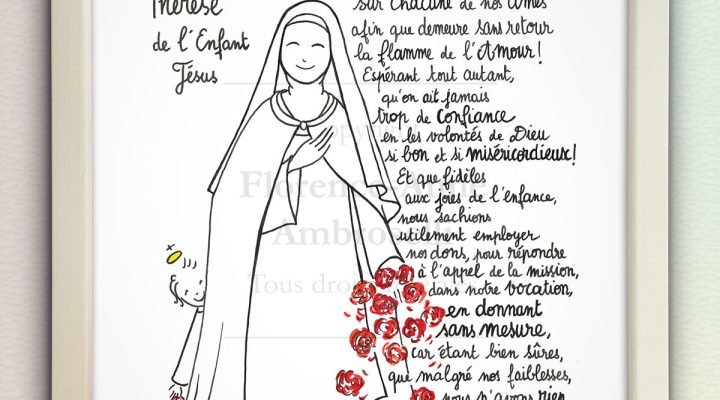 Thérèse
de l'Enfant
Jésus
sur chacune de nos âmes
afin que demeure sans retour
la flamme de l'Amour !
Espérant tout autant,
qu'on ait jamais
trop de confiance
en les volontés de Dieu
si bon et si miséricordieux !
Et que fidèles
aux joies de l'enfance,
nous sachions
utilement employer
nos dons, pour répondre
à l'appel de la mission,
dans notre vocation,
en donnant
sans mesure,
car étant bien sûres,
que malgré nos faiblesses,
nous n'avons rien
Florence-Anne
Tous droits